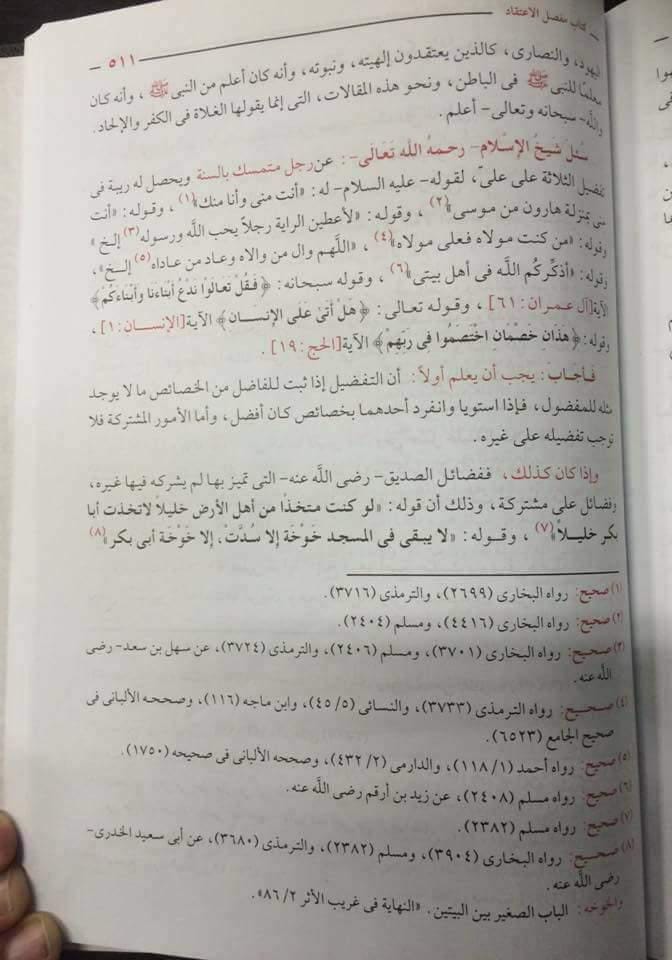 كتاب مفصل الاعتقاد
٥١١
اليهود، والنصارى، كالذين يعتقدون إلهيته، ونبوته، وأنه كان أعلم من النبى ﷺ، وأنه كان
معلمًا للنبى ﷺ فى الباطن، ونحو هذه المقالات، التى إنما يقولها الغلاة فى الكفر والإلحاد.
والله- سبحانه وتعالى- أعلم.
سئل شيخ الإسلام- رحمه الله تعالى-: عن رجل متمسك بالسنة ويحصل له ريبة فى
تفضيل الثلاثة على علىّ، لقوله- عليه السلام- له: «أنت منى وأنا منك»(١)، وقوله: «أنت
منى بمنزلة هارون من موسى»(٢)، وقوله: «لأعطين الراية رجلاً يحب الله ورسوله(٣) إلخ»
وقوله: «من كنت مولاه فعلى مولاه»(٤)، «اللهم وال من والاه وعاد من عاداه(٥) إلخ»،
وقوله: «أذكركم الله فى أهل بيتى»(٦)، وقوله سبحانه: ﴿فَقُلْ تَعَالَوْا نَدْعُ أَبْنَاءَنَا وَأَبْنَاءَكُمْ﴾
الآية[آل عمران: ٦١]، وقوله تعالى: ﴿هَلْ أَتَىٰ عَلَى الإِنسَانِ﴾ الآية[الإنسان: ١]،
وقوله: ﴿هَذَانِ خَصْمَانِ اخْتَصَمُوا فِى رَبِّهِمْ﴾ الآية[الحج: ١٩].
فـأجـاب: يجب أن يعلم أولاً: أن التفضيل إذا ثبت للفاضل من الخصائص ما لا يوجد
مثله للمفضول، فإذا استويا وانفرد أحدهما بخصائص كان أفضل، وأما الأمور المشتركة فلا
توجب تفضيله على غيره.
وإذا كان كذلك، ففضائل الصديق- رضى الله عنه- التى تميز بها لم يشركه فيها غيره،
وفضائل على مشتركة، وذلك أن قوله: «لو كنت متخذًا من أهل الأرض خليلاً لاتخذت أبا
بكر خليلاً»(٧)، وقوله: «لا يبقى فى المسجد خَوْخَة إلا سُدَّتْ، إلا خَوْخَة أبى بكر»(٨)
(١) صحيح: رواه البخارى (٢٦٩٩)، والترمذى (٣٧١٦).
(٢) صحيح: رواه البخارى (٤٤١٦)، ومسلم (٢٤٠٤).
(٣) صحيح: رواه البخارى (٣٧٠١)، ومسلم (٢٤٠٦)، والترمذى (٣٧٢٤)، عن سهل بن سعد- رضى
الله عنه.
(٤) صحيح: رواه الترمذى (٣٧٣٣)، والنسائى (٤٥/٥)، وابن ماجه (١١٦)، وصححه الألبانى فى
صحيح الجامع (٦٥٢٣).
(٥) صحيح: رواه أحمد (١١٨/١)، والدارمى (٤٣٢/٢)، وصححه الألبانى فى صحيحه (١٧٥٠).
(٦) صحيح: رواه مسلم (٢٤٠٨)، عن زيد بن أرقم رضى الله عنه.
(٧) صحيح: رواه مسلم (٢٣٨٢).
(٨) صحيح: رواه البخارى (٣٩٠٤)، ومسلم (٢٣٨٢)، والترمذى (٣٦٨٠)، عن أبى سعيد الخدرى-
رضى الله عنه.
والخوخة: الباب الصغير بين البيتين. «النهاية فى غريب الأثر ٨٦/٢».